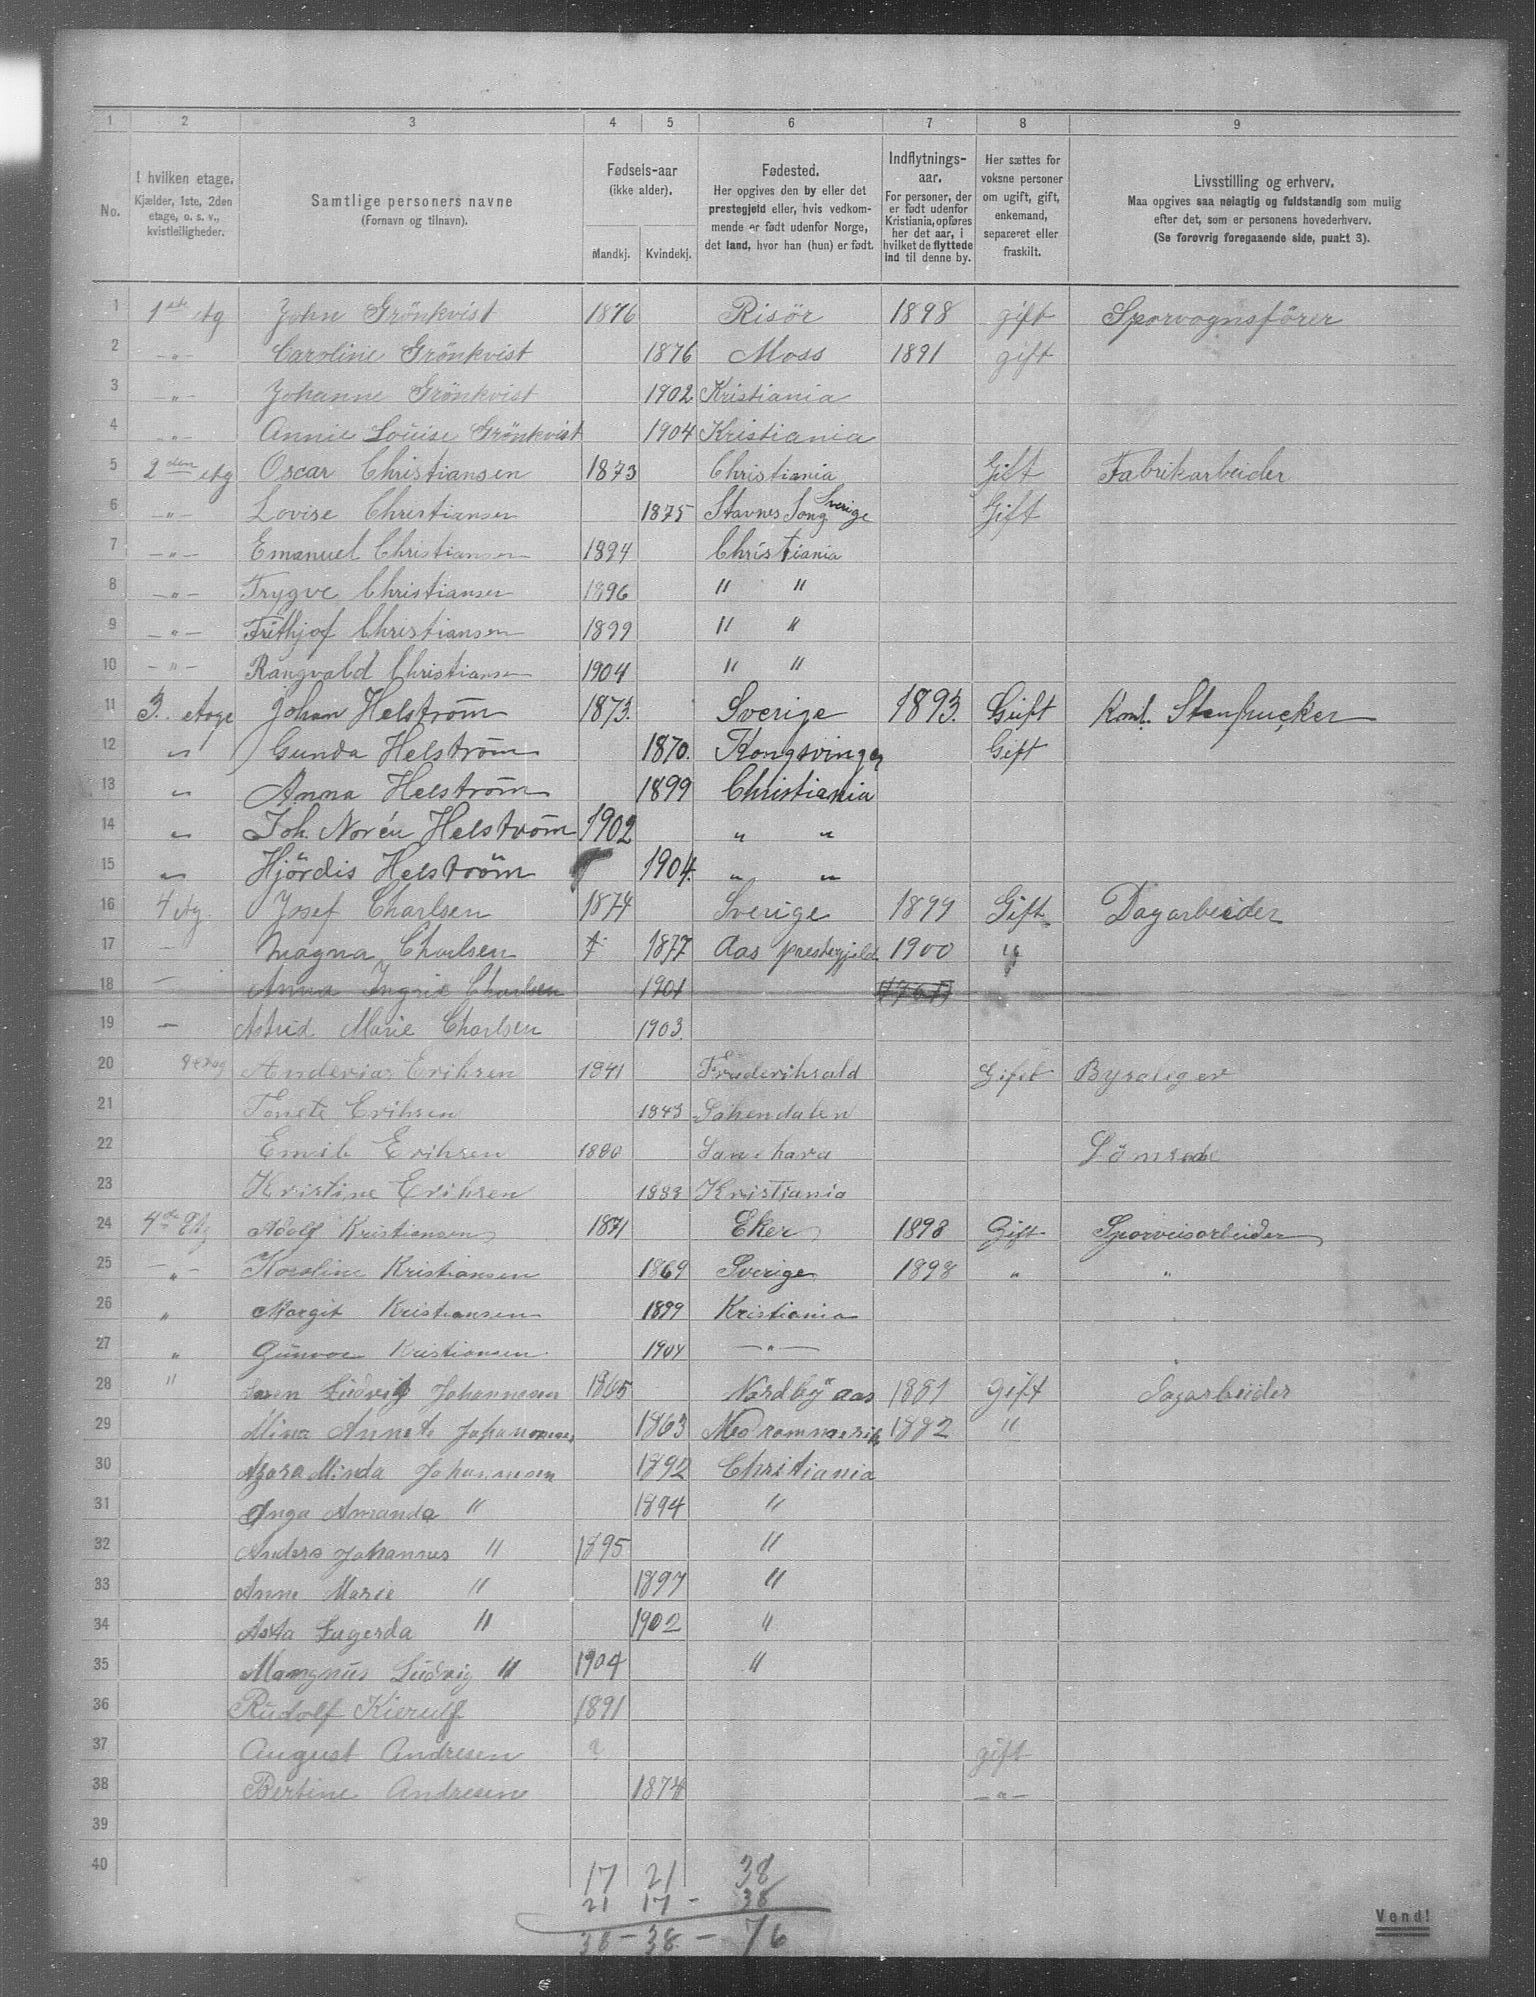 1 2 3 4 5 6 7 8 9
No.
I hvilken etage.
Kjælder, 1ste, 2den
etage, o. s. v.,
kvistleiligheder.
Samtlige personers navne
(Fornavn og tilnavn).
Fødsels-aar
(ikke alder).
Mandkj. Kvindekj.
Fødested.
Her opgives den by eller det
prestegjeld eller, hvis vedkom-
mende er født udenfor Norge,
det land, hvor han (hun) er født.
Indflytnings-
aar.
For personer, der
er født udenfor
Kristiania, opføres
her det aar, i
hvilket de flyttede
ind til denne by.
Her sættes for
voksne personer
om ugift, gift,
enkemand,
separeret eller
fraskilt.
Livsstilling og erhverv.
Maa opgives saa nøiagtig og fuldstændig som mulig
efter det, som er personens hovederhverv.
(Se forøvrig foregaaende side, punkt 3).
1 1ste etg John Grönkvist 1876 Risör 1898 gift Sporvognsfører
2 -"- Caroline Grönkvist 1876 Moss 1891 gift
3 -"- Johanne Grönkvist 1902 Kristiania
4 -"- Annie Louise Grönkvist 1904 Kristiania
5 2den etg Oscar Christiansen 1873 Christiania Gift Fabrikarbeider
6 -"- Lovise Christiansen 1875 Stavnes Song Sverige Gift
7 -"- Emanuel Christiansen 1894 Christiania
8 -"- Trygve Christiansen 1896 " "
9 -"- Frithjof Christiansen 1899 " "
10 -"- Rangvald Christiansen 1904 " "
11 3. etage Johan Helström 1873. Sverige 1893. Gift Koml. Stenhucker
12 " Gunda Helström 1870. Kongsvinger Gift
13 " Anna Helström 1899 Christiania
14 " Joh. Norén Helström 1902 " "
15 " Hjördis Helström 1904. " "
16 4 etg. Josef Charlsen 1874 Sverige 1899 Gift Dagarbeider
17 - Magna Charlsen 1877 Aas prestegjeld 1900 "
18 - Anna Ingrie Charlsen 1901
19 - Astrid Marie Charlsen 1903.
20 Anderias Erihsen 1841 Frederihsald Gifit
21 Tonete Erihsen 1843 Sohendalen
22 Emil Erihsen 1880
23 Kristine Erihsen 1883 Kristiania
24 4de Etg Adolf Kristiansen 1871 Eker 1898 Gift Sporveisarbeider
25 -"- Karoline Kristiansen 1869 Sverige 1898 " "
26 " Margit Kristiansen 1899 Kristiania
27 " Gunvor Kristiansen 1904 -"-
28 " Ludvig Johannesen 1865 Nordby aas 1881 Gift Dagarbeider
29 Mina Annete Johannesen 1863 Nedrommerik 1882 "
30 Agara Minda Johannesen 1892 Christiania
31 Inga Amanda " 1894 "
32 Anders Johannes " 1895 "
33 Anne Marie " 1897 "
34 Asta Lugerda " 1902 "
35 Mangnus Ludvig " 1904 "
36 Rudolf Kierulf 1891
37 August Andresen ? gift
38 Bertine Andresen 1874 -"-
39
40
17 21 38
21 17 - 38
38 - 38 - 76
Vend!